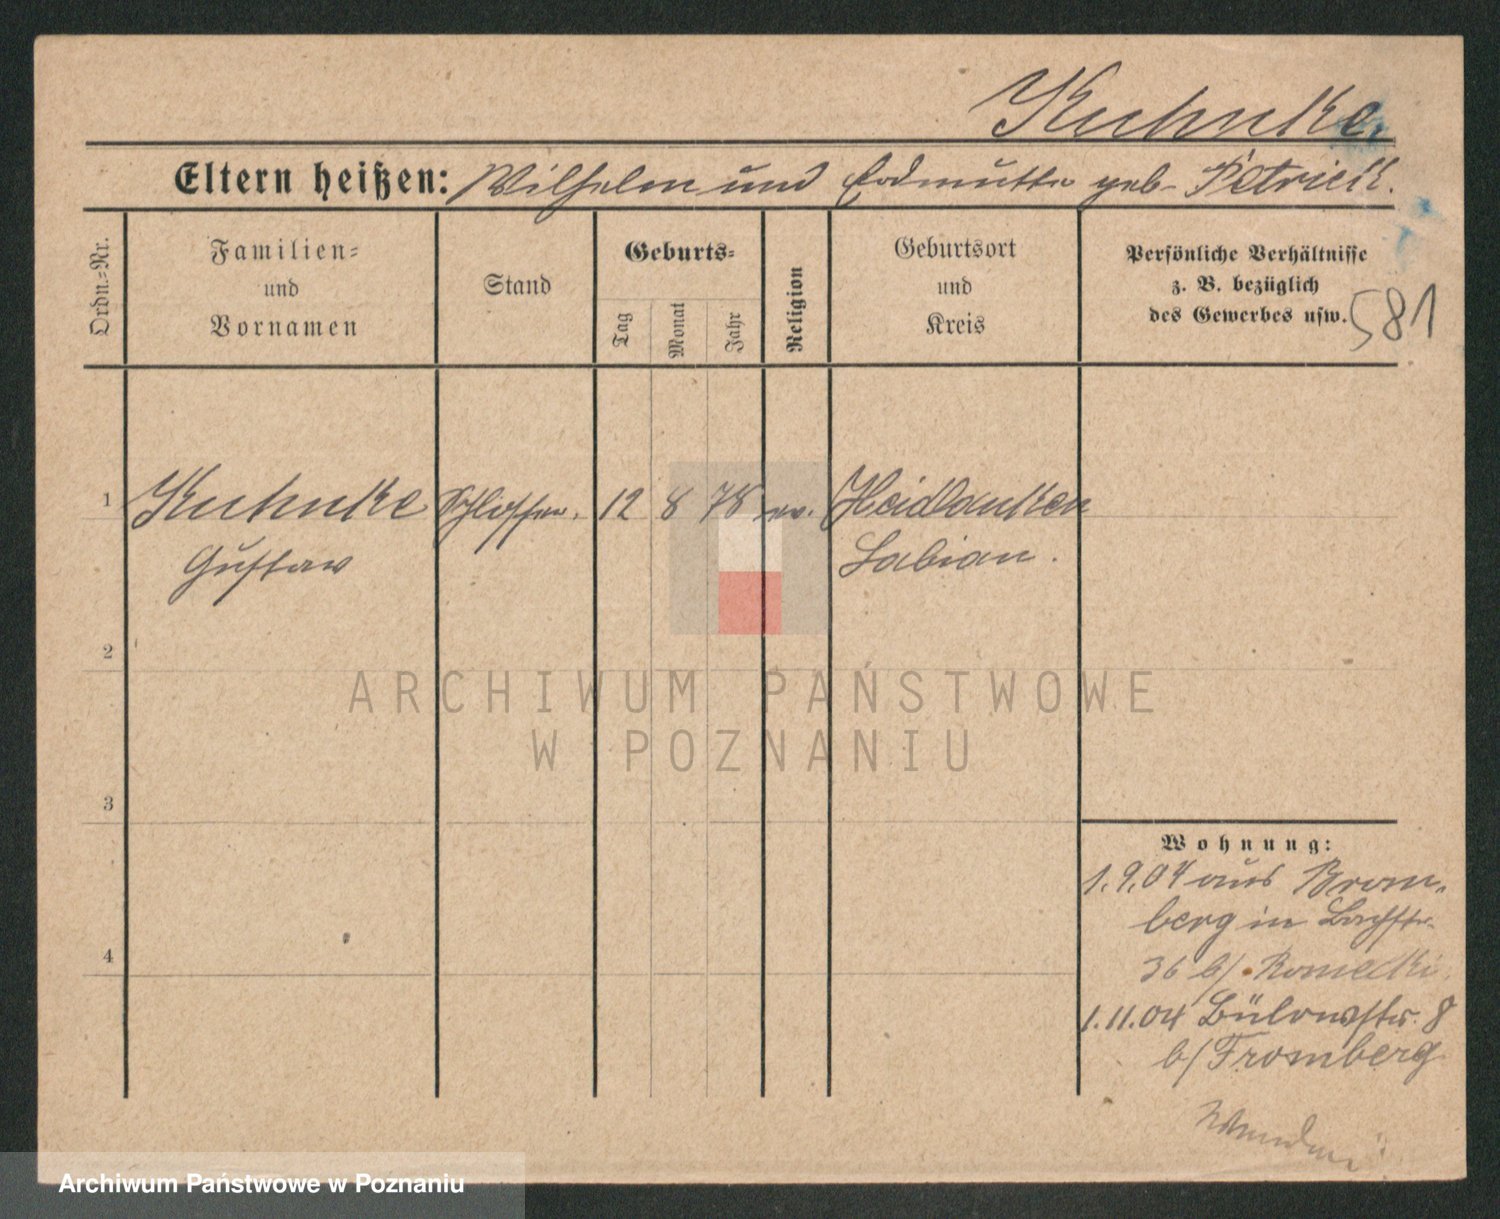 Kuhnke.
Eltern heißen: Wilhelm und Erdmutte geb. Petrick.
Ordn.-Nr.
Familien-
und
Vornamen
Stand
Geburts-
Tag
Monat
Jahr
Religion
Geburtsort
und
Kreis
Persönliche Verhältnisse
z. B. bezüglich
des Gewerbes usw.
581
1 Kuhnke Schlosser. 12 8 78 ev. Heidlauken
Gustav Labiau.
2
ARCHIWUM PAŃSTWOWE
W POZNANIU
3
Wohnung:
1.9.04 aus Brom-
berg in Bachstr.
36 b/ Romecki.
4
1.11.04 Bülowstr. 8
b/ Fromberg
Archiwum Państwowe w Poznaniu